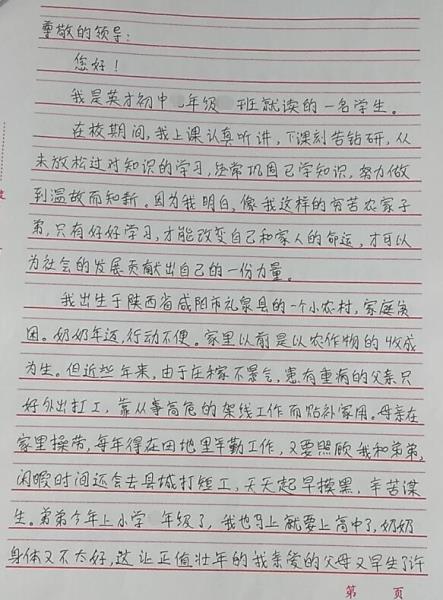 尊敬的领导:
您好!
我是英才初中 年级 班就读的一名学生。
在校期间,我上课认真听讲,下课刻苦钻研,从
未放松过对知识的学习,经常巩固已学知识,努力做
到温故而知新。因为我明白,像我这样的贫苦农家子
弟,只有好好学习,才能改变自己和家人的命运,才可以
为社会的发展贡献出自己的一份力量。
我出生于陕西省咸阳市礼泉县的一个小农村,家庭贫
困。奶奶年迈,行动不便。家里以前是以农作物的收成
为生。但近些年来,由于庄稼不景气,患有重病的父亲只
好外出打工,靠从事高危的架线工作而贴补家用。母亲在
家里操劳,每年得在田地里辛勤工作,又要照顾我和弟弟,
闲暇时间还会去县城打短工,天天起早摸黑,辛苦谋
生。弟弟今年上小学 年级了,我也马上就要上高中了,奶奶
身体又不太好,这让正值壮年的我亲爱的父母又早生了许
第 页